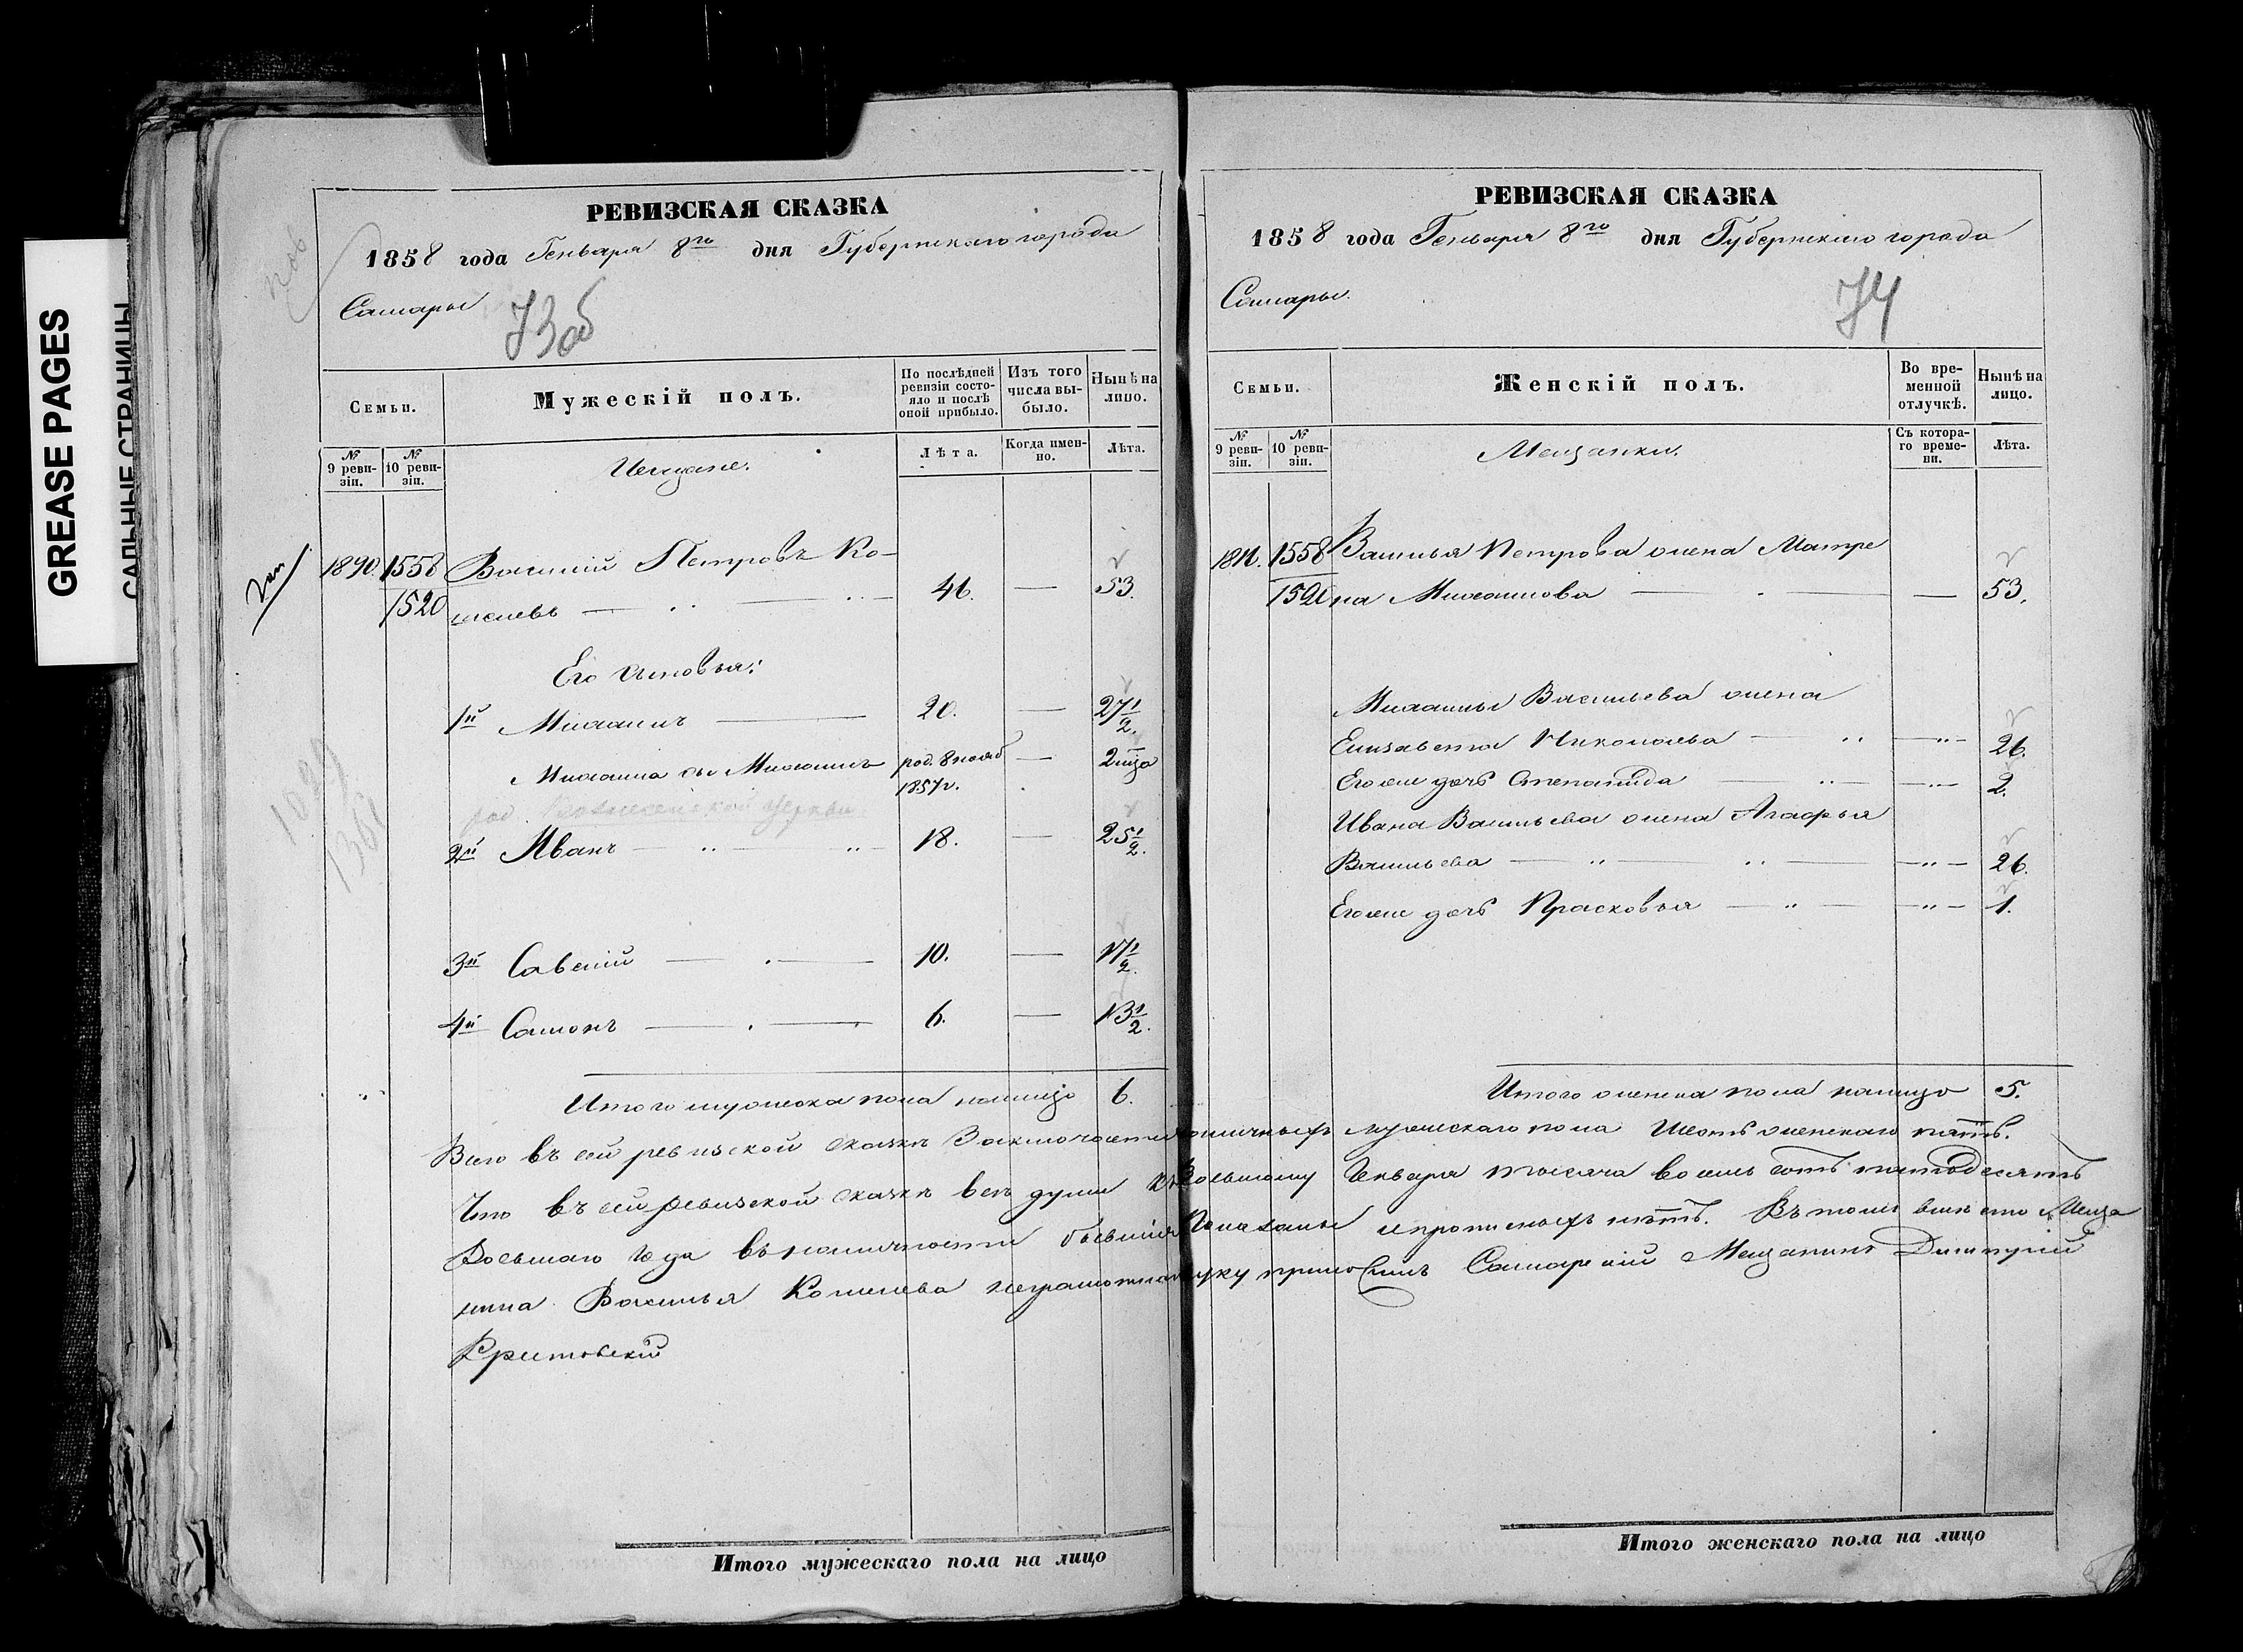 GREASE PAGES
САЛЬНЫЕ СТРАНИЦЫ
РЕВИЗСКАЯ СКАЗКА
1858 года Генваря 8го дня Губернскаго города
Самары
73об
Семьи.
Мужескій полъ.
По послѣдней ревизіи состояло и послѣ оной прибыло.
Изъ того числа выбыло.
Нынѣ на лицо.
№ 9 ревизіи.
№ 10 ревизіи.
Мещане.
Лѣта.
Когда именно.
Лѣта.
1890. 1558 Василій Петровъ Ко-
1520 шелевъ — 46. — 53.
Его сыновья:
1й Михаилъ — 20. — 27 1/2.
Михаила сы Михаилъ род. 8 нояб — 2 м̄ца
1857 г.
род. Вознесенской церкви
2й Иванъ — 18. — 25 1/2.
3й Савелій — 10. — 17 1/2.
4й Самонъ — 6. — 13 1/2.
Итого мужеска пола налицо 6.
РЕВИЗСКАЯ СКАЗКА
1858 года Генваря 8го дня Губернскаго города
Самары.
74
Семьи.
Женскій полъ.
Во временной отлучкѣ.
Нынѣ на лицо.
№ 9 ревизіи.
№ 10 ревизіи.
Мещанки.
Съ котораго времени.
Лѣта.
1558 Василья Петрова жена Матре
1520 на Михаилова — — 53.
Михаилы Васильева жена
Елизавета Николаева — — 26.
Его же дочь Степанида — — 2.
Ивана Васильева жена Агафья
Васильева — — 26.
Его же дочь Прасковья — — 1.
Итого женска пола налицо 5.
Всего въ сей ревизской сказкѣ Заключается наличныхъ мужескаго пола Шесть женскаго пять.
Что въ сей ревизской сказкѣ всѣ души къ Восьмому Генваря тысяча восемь сотъ пятьдесятъ
Восьмаго года въ наличности бывшія Показаны и прописныхъ нѣтъ. Въ томъ вмѣсто Меща
нина Василья Кошелева неграмотнаго руку приложилъ Самарскій Мещанинъ Димитрій
Итого мужескаго пола на лицо
Итого женскаго пола на лицо